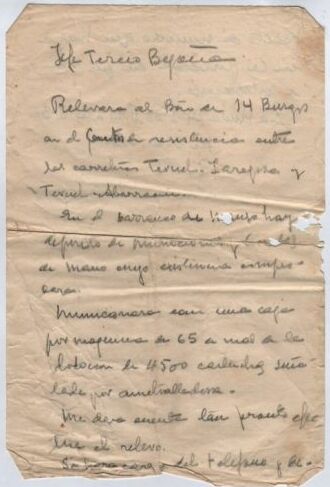 Jefe Tercio Begoña
Relevara al Bon de 14 Burgos
en el Centro de resistencia entre
las carreteras Teruel-Zaragoza y
Teruel-Albarracin.
En el barranco de hay
deposito de municiones y
de mano cuya existencia compro-
bara.
Municionara con una caja
por maquina de 65 a mas de la
dotacion de 4500 cartuchos seña-
lada por ametralladora.
Me dara cuenta tan pronto efec-
tue el relevo.
Se hara cargo del telefono y